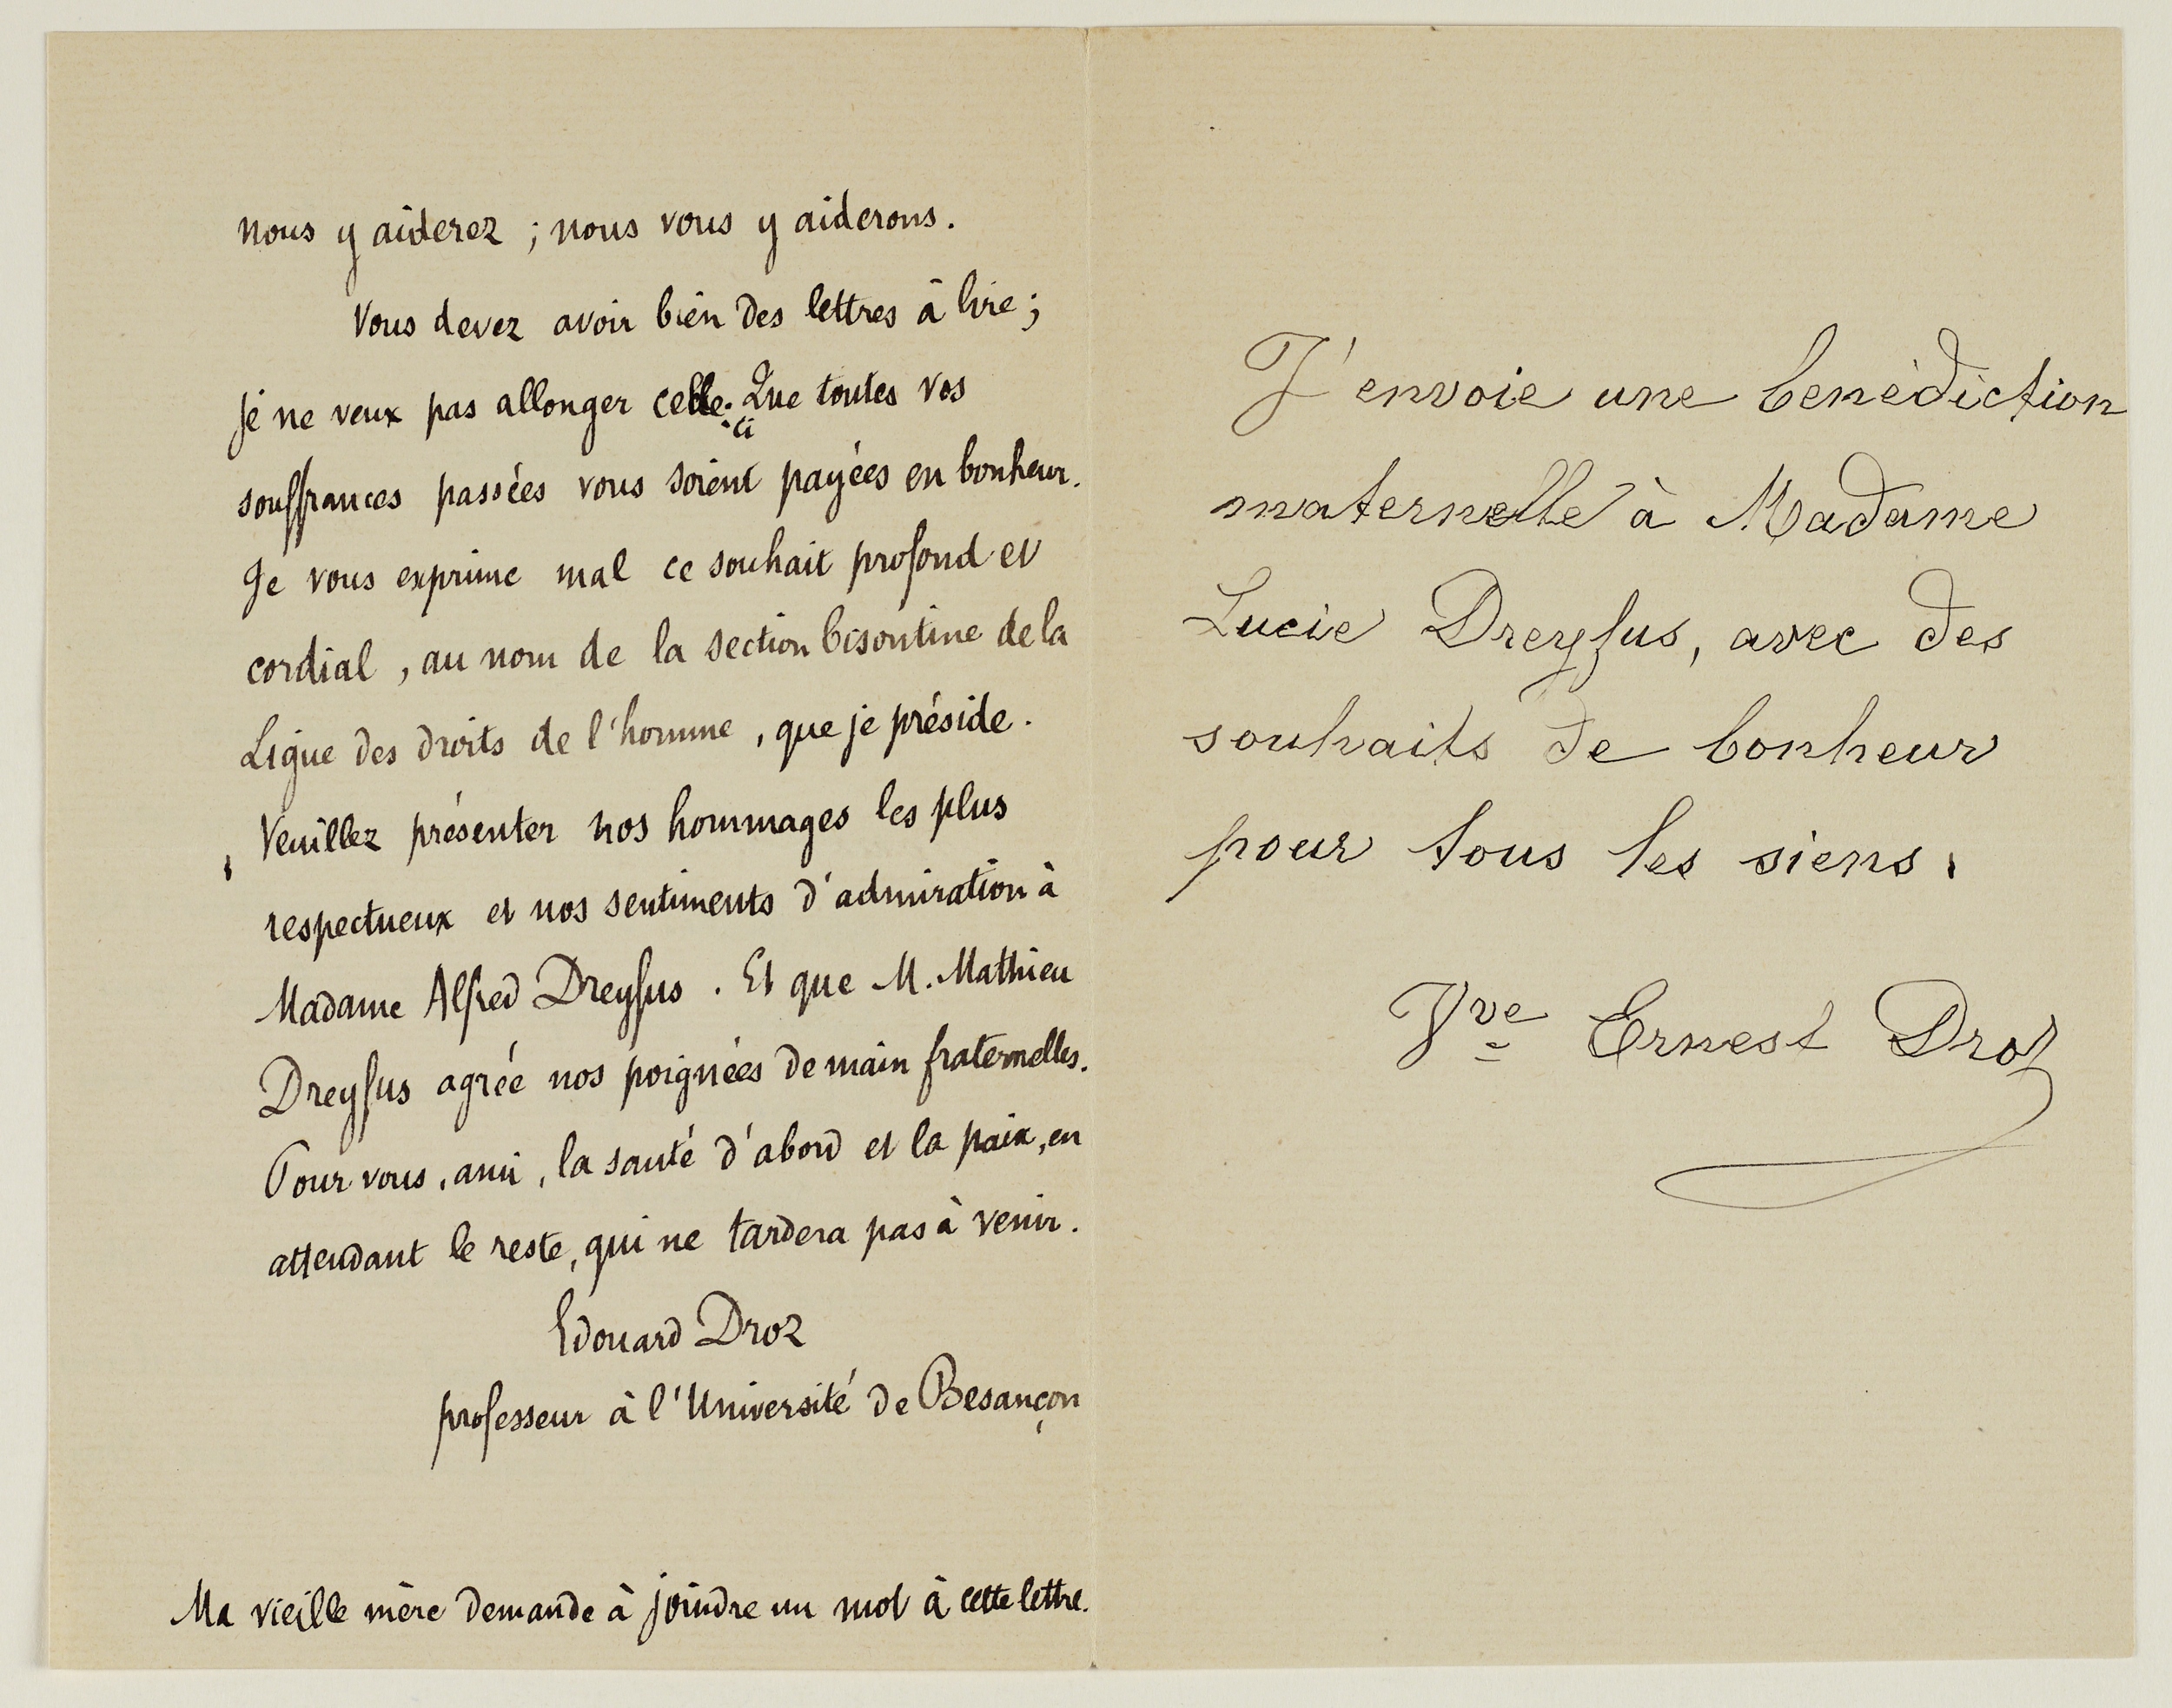 nous y aiderez ; nous vous y aiderons.
Vous devez avoir bien des lettres à lire ;
je ne veux pas allonger celle-ci. Que toutes vos
souffrances passées vous soient payées en bonheur.
Je vous exprime mal ce souhait profond et
cordial, au nom de la section bisontine de la
Ligue des droits de l'homme, que je préside.
Veuillez présenter nos hommages les plus
respectueux et nos sentiments d'admiration à
Madame Alfred Dreyfus. Et que M. Mathieu
Dreyfus agrée nos poignées de main fraternelles.
Pour vous, ami, la santé d'abord et la paix, en
attendant le reste, qui ne tardera pas à venir.
Edouard Droz
professeur à l'Université de Besançon
Ma vieille mère demande à joindre un mot à cette lettre.
J'envoie une benédiction
maternelle à Madame
Lucie Dreyfus, avec des
souhaits de bonheur
pour tous les siens.
Vve Ernest Droz